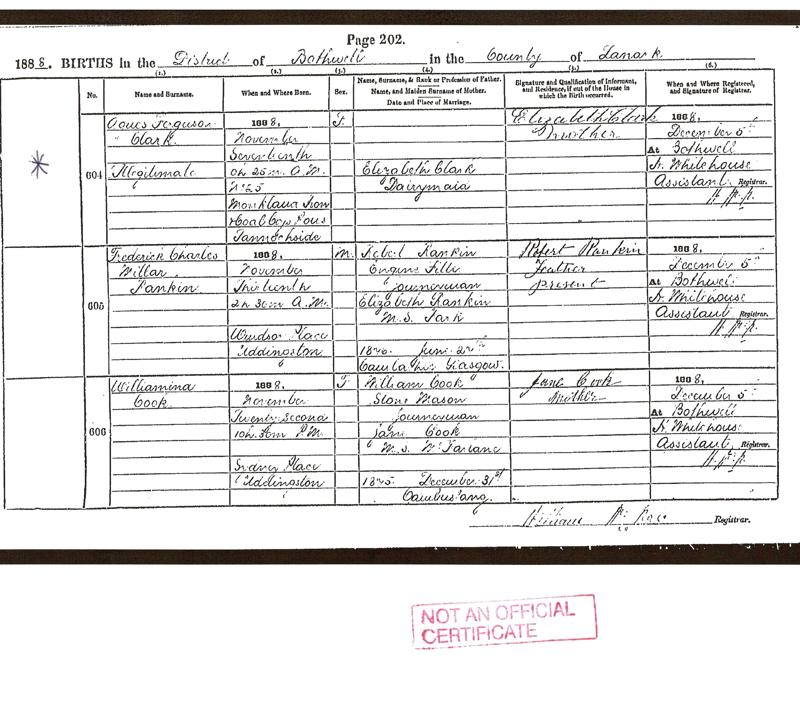 Page 202.
1888. BIRTHS in the District of Bothwell in the County of Lanark
(1.) (2.) (3.) (4.) (5.) (6.)
No. Name and Surname. When and Where Born. Sex. Name, Surname, & Rank or Profession of Father. Name, and Maiden Surname of Mother. Date and Place of Marriage. Signature and Qualification of Informant, and Residence, if out of the House in which the Birth occurred. When and Where Registered, and Signature of Registrar.
604
Agnes Ferguson
Clark
Illegitimate
1888,
November
Seventeenth
0h 25m A.M.
No 25
Monkland Iron
& Coal Coys Rows
Tannochside
F.
Elizabeth Clark
Dairymaid
Elizabeth Clark
Mother
1888,
December 5th
At Bothwell
Whitehouse
Assistant Registrar.
605
Frederick Charles
Millar
Rankin
1888,
November
Thirteenth
2h 30m A.M.
Windsor Place
Uddingston
M.
Robert Rankin
Engine Fitter
Journeyman
Elizabeth Rankin
M.S. Park
June
Glasgow.
Robert Rankin
Father
present
1888,
December 5th
At Bothwell
Whitehouse
Assistant Registrar.
606
Williamina
Cook
1888,
November
Twenty-Second
P.M.
Sydney Place
Uddingston
F
William Cook
Stone Mason
Journeyman
Jane Cook
M.S. McFarlane
December 31st
Cambuslang.
Jane Cook
Mother
1888,
December 5th
At Bothwell
Whitehouse
Assistant Registrar.
William Registrar.
NOT AN OFFICIAL
CERTIFICATE